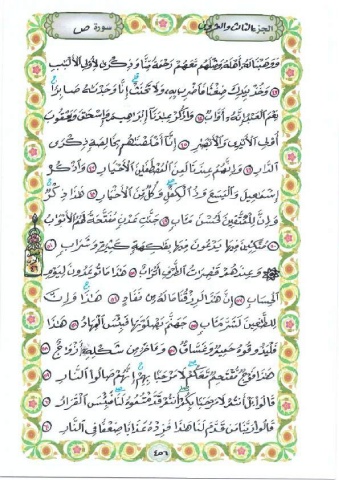 الجزء الثالث والعشرون
سورة ص
وَوَهَبْنَا لَهُ أَهْلَهُ وَمِثْلَهُم مَّعَهُمْ رَحْمَةً مِّنَّا وَذِكْرَىٰ لِأُولِي الْأَلْبَابِ
٤٣ وَخُذْ بِيَدِكَ ضِغْثًا فَاضْرِب بِّهِ وَلَا تَحْنَثْ إِنَّا وَجَدْنَاهُ صَابِرًا
نِعْمَ الْعَبْدُ إِنَّهُ أَوَّابٌ ٤٤ وَاذْكُرْ عِبَادَنَا إِبْرَاهِيمَ وَإِسْحَاقَ وَيَعْقُوبَ
أُولِي الْأَيْدِي وَالْأَبْصَارِ ٤٥ إِنَّا أَخْلَصْنَاهُم بِخَالِصَةٍ ذِكْرَى
الدَّارِ ٤٦ وَإِنَّهُمْ عِندَنَا لَمِنَ الْمُصْطَفَيْنَ الْأَخْيَارِ ٤٧ وَاذْكُرْ
إِسْمَاعِيلَ وَالْيَسَعَ وَذَا الْكِفْلِ وَكُلٌّ مِّنَ الْأَخْيَارِ ٤٨ هَٰذَا ذِكْرٌ
وَإِنَّ لِلْمُتَّقِينَ لَحُسْنَ مَآبٍ ٤٩ جَنَّاتِ عَدْنٍ مُّفَتَّحَةً لَّهُمُ الْأَبْوَابُ
٥٠ مُتَّكِئِينَ فِيهَا يَدْعُونَ فِيهَا بِفَاكِهَةٍ كَثِيرَةٍ وَشَرَابٍ ٥١
وَعِندَهُمْ قَاصِرَاتُ الطَّرْفِ أَتْرَابٌ ٥٢ هَٰذَا مَا تُوعَدُونَ لِيَوْمِ
الْحِسَابِ ٥٣ إِنَّ هَٰذَا لَرِزْقُنَا مَا لَهُ مِن نَّفَادٍ ٥٤ هَٰذَا وَإِنَّ
لِلطَّاغِينَ لَشَرَّ مَآبٍ ٥٥ جَهَنَّمَ يَصْلَوْنَهَا فَبِئْسَ الْمِهَادُ ٥٦ هَٰذَا
فَلْيَذُوقُوهُ حَمِيمٌ وَغَسَّاقٌ ٥٧ وَآخَرُ مِن شَكْلِهِ أَزْوَاجٌ ٥٨
هَٰذَا فَوْجٌ مُّقْتَحِمٌ مَّعَكُمْ لَا مَرْحَبًا بِهِمْ إِنَّهُمْ صَالُوا النَّارِ ٥٩
قَالُوا بَلْ أَنتُمْ لَا مَرْحَبًا بِكُمْ أَنتُمْ قَدَّمْتُمُوهُ لَنَا فَبِئْسَ الْقَرَارُ ٦٠
قَالُوا رَبَّنَا مَن قَدَّمَ لَنَا هَٰذَا فَزِدْهُ عَذَابًا ضِعْفًا فِي النَّارِ ٦١
٤٥٦